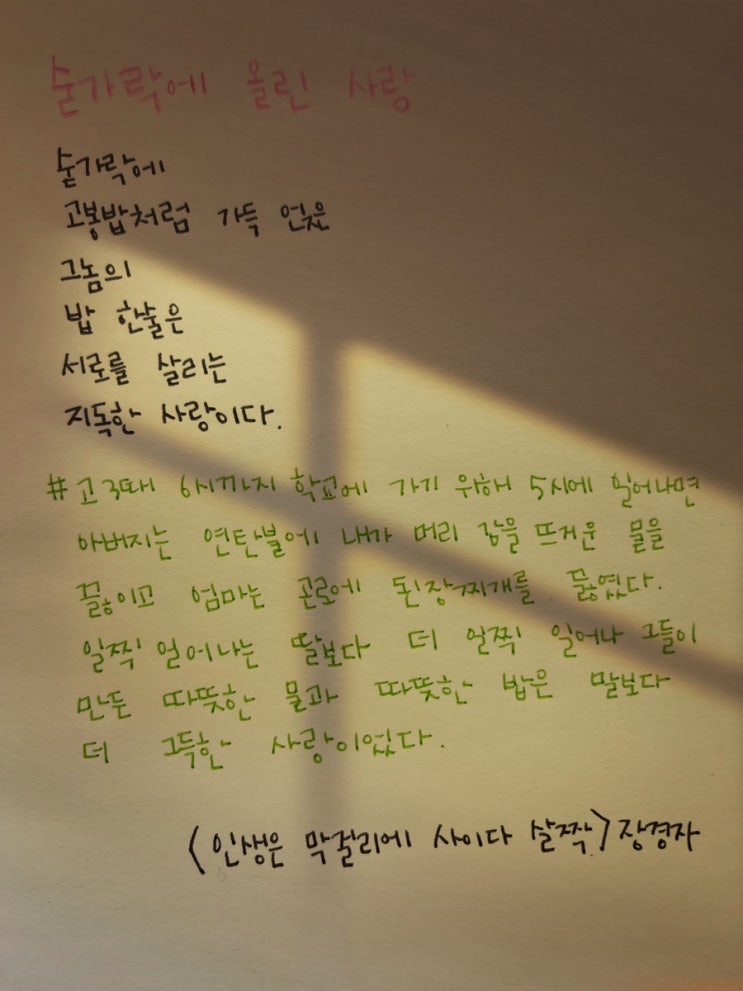 숟가락에 올린 사랑
숟가락에
고봉밥처럼 가득 얹은
그놈의
밥 한술은
서로를 살리는
지독한 사랑이다.
# 고3때 6시까지 학교에 가기 위해 5시에 일어나면
아버지는 연탄불에 내가 머리 감을 뜨거운 물을
끓이고 엄마는 곤로에 된장찌개를 끓였다.
일찍 일어나는 딸보다 더 일찍 일어나 그들이
만든 따뜻한 물과 따뜻한 밥은 말보다
더 그득한 사랑이었다.
<인생은 막걸리에 사이다 살짝> 장경자